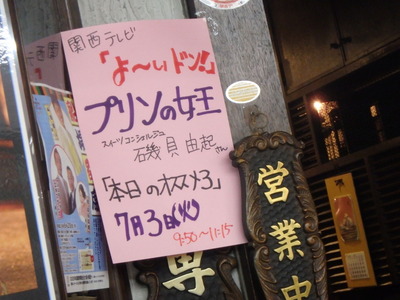 関西テレビ
「よ〜いドン!!」
プリンの女王
スイーツコンシェルジュ
磯貝由起さん
「本日のオススメ3」
7月3日(火)
9:50〜11:15
営業中
専